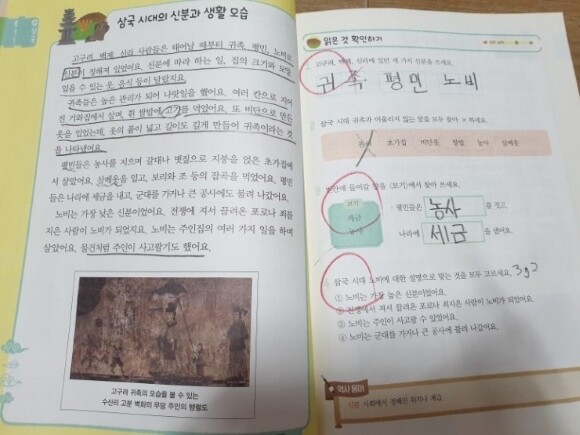 삼국 시대의 신분과 생활 모습
고구려, 백제, 신라 사람들은 태어날 때부터 귀족, 평민, 노비로
신분이 정해져 있었어요. 신분에 따라 하는 일, 집의 크기와 모양,
입을 수 있는 옷, 음식 등이 달랐지요.
귀족들은 높은 관리가 되어 나랏일을 했어요. 여러 칸으로 지어
진 기와집에서 살며, 흰 쌀밥에 고기를 먹었어요. 또 비단으로 만든
옷을 입었는데, 옷의 폭이 넓고 길이도 길게 만들어 귀족이라는 것
을 나타냈어요.
평민들은 농사를 지으며 갈대나 볏짚으로 지붕을 얹은 초가집에
서 살았어요. 삼베옷을 입고, 보리와 조 등의 잡곡을 먹었어요. 평민
들은 나라에 세금을 내고, 군대를 가거나 큰 공사에도 불려 나갔어요.
노비는 가장 낮은 신분이었어요. 전쟁에 져서 끌려온 포로나 죄를
지은 사람이 노비가 되었지요. 노비는 주인집의 여러 가지 일을 하며
살았어요. 물건처럼 주인이 사고팔기도 했어요.
고구려 귀족의 모습을 볼 수 있는
수산리 고분 벽화의 무덤 주인의 행렬도
읽은 것 확인하기
고구려, 백제, 신라에 있던 세 가지 신분을 쓰세요.
귀족 평민 노비
삼국 시대 귀족과 어울리지 않는 말을 모두 찾아 × 하세요.
초가집 비단옷 쌀밥 농사 삼베옷
빈칸에 들어갈 말을 〈보기〉에서 찾아 쓰세요.
보기
세금
농사
평민들은 농사 를 짓고,
나라에 세금 을 냈어요.
삼국 시대 노비에 대한 설명으로 맞는 것을 모두 고르세요. 3, 2
① 노비는 가장 높은 신분이었어요.
② 전쟁에서 져서 끌려온 포로나 죄지은 사람이 노비가 되었어요.
③ 노비는 주인이 사고팔 수 있었어요.
④ 노비는 군대를 가거나 큰 공사에 불려 나갔어요.
역사 용어
신분 사회에서 정해진 위치나 계급.